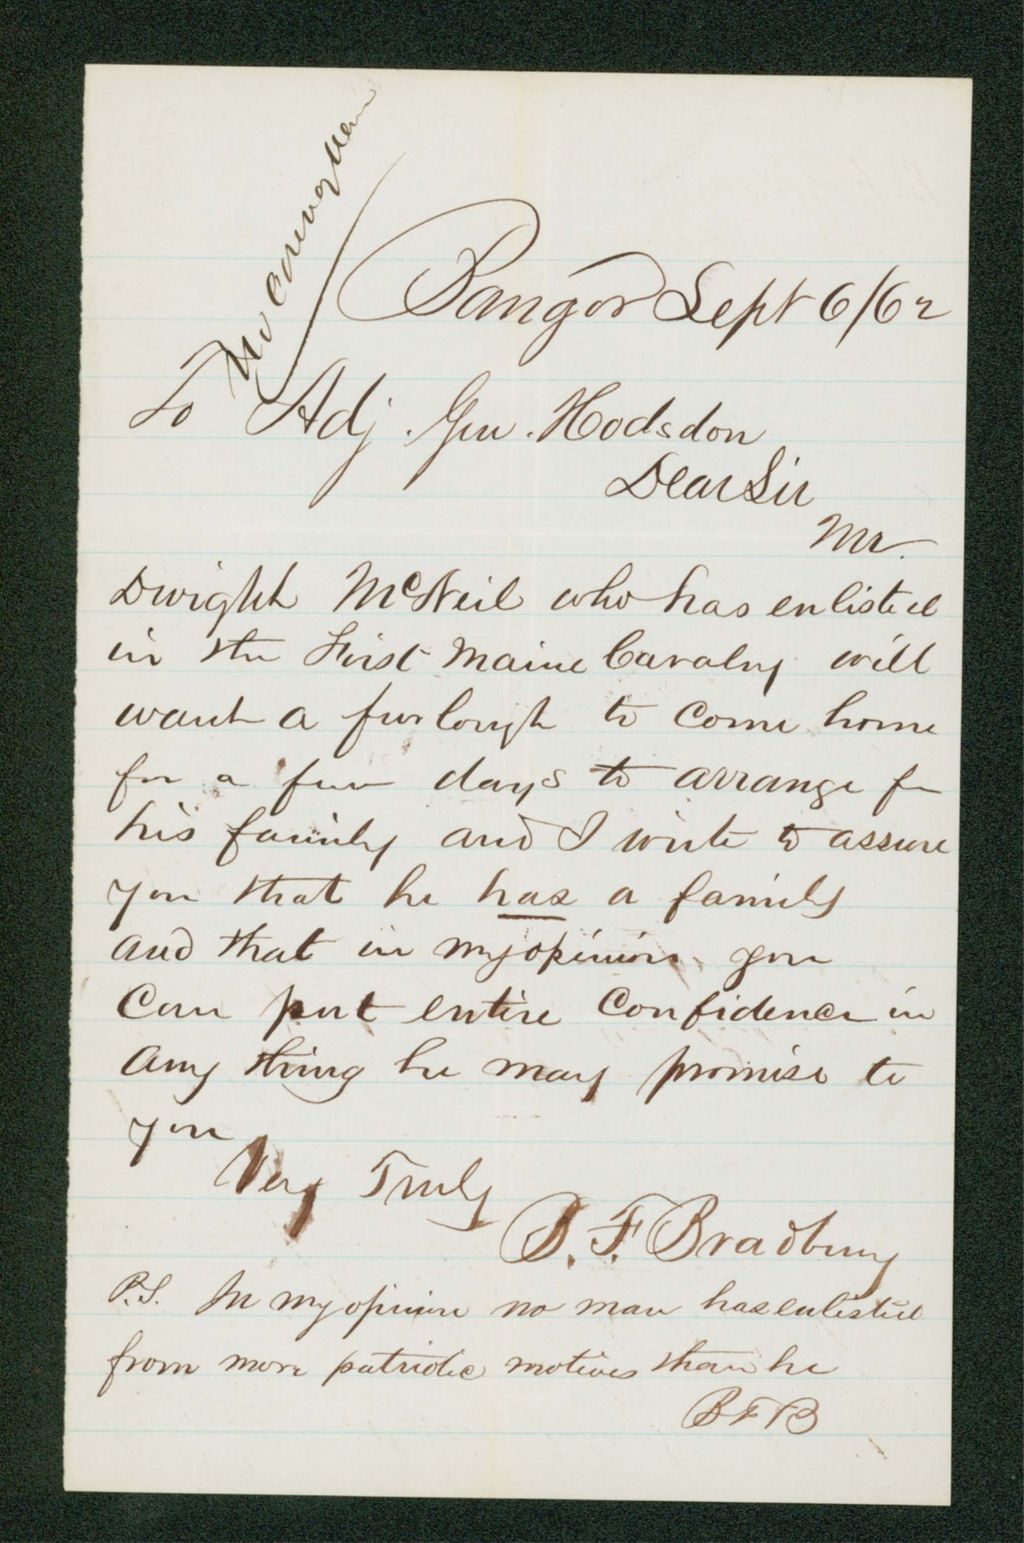 Bangor Sept 6/62
To Adj. Gen. Hodsdon
Dear Sir
Mr.
Dwight McNeil who has enlisted
in the First Maine Cavalry will
want a furlough to come home
for a few days to arrange for
his family and I write to assure
you that he has a family
and that in my opinion you
can put entire confidence in
any thing he may promise to
you
Very Truly
B. F. Bradbury
P.S. In my opinion no man has enlisted
from more patriotic motives than he
BFB